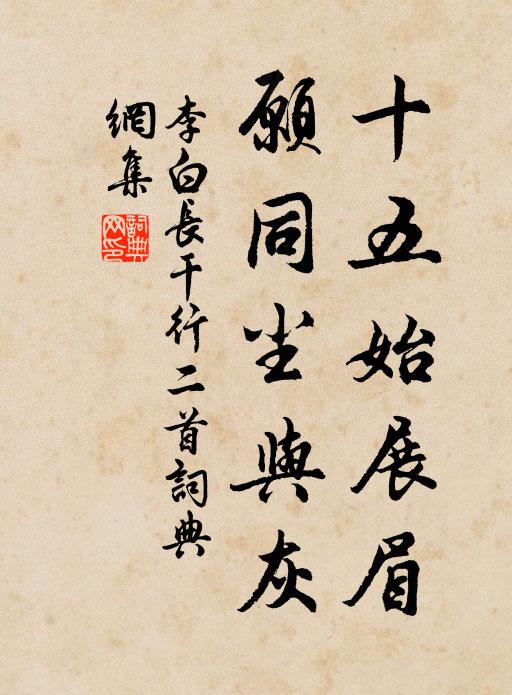 十五始展眉
願同尘與灰
李白長干行二首詞典
網集
詞典
网印